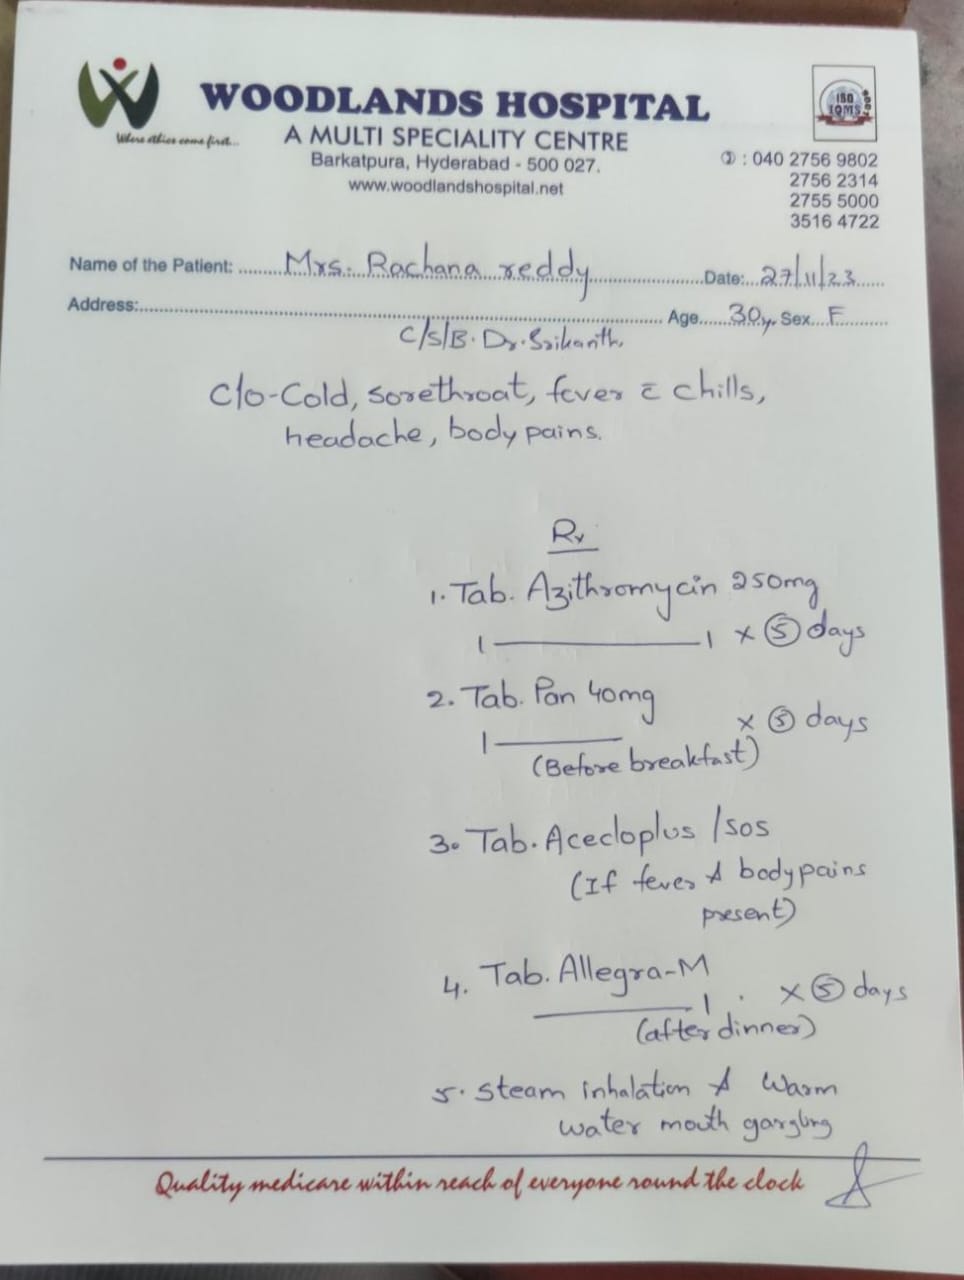 WOODLANDS HOSPITAL
A MULTI SPECIALITY CENTRE
Barkatpura, Hyderabad - 500 027.
www.woodlandshospital.net
Where ethics come first...
ISO
IQMS
: 040 2756 9802
2756 2314
2755 5000
3516 4722
Name of the Patient: Mrs. Rachana reddy Date: 27/11/23
Address: Age 30y Sex F
C/S/B. Dr. Srikanth
C/o-Cold, sorethroat, fever c̄ chills,
headache, body pains.
Rx
1. Tab. Azithromycin 250mg
1 ——— 1 x ⑤ days
2. Tab. Pan 40mg
1 ——— x ⑤ days
(Before breakfast)
3. Tab. Acecloplus /sos
(If fever & bodypains
present)
4. Tab. Allegra-M
——— 1 . x ⑤ days
(after dinner)
5. Steam inhalation & Warm
water mouth gargling
Quality medicare within reach of everyone round the clock